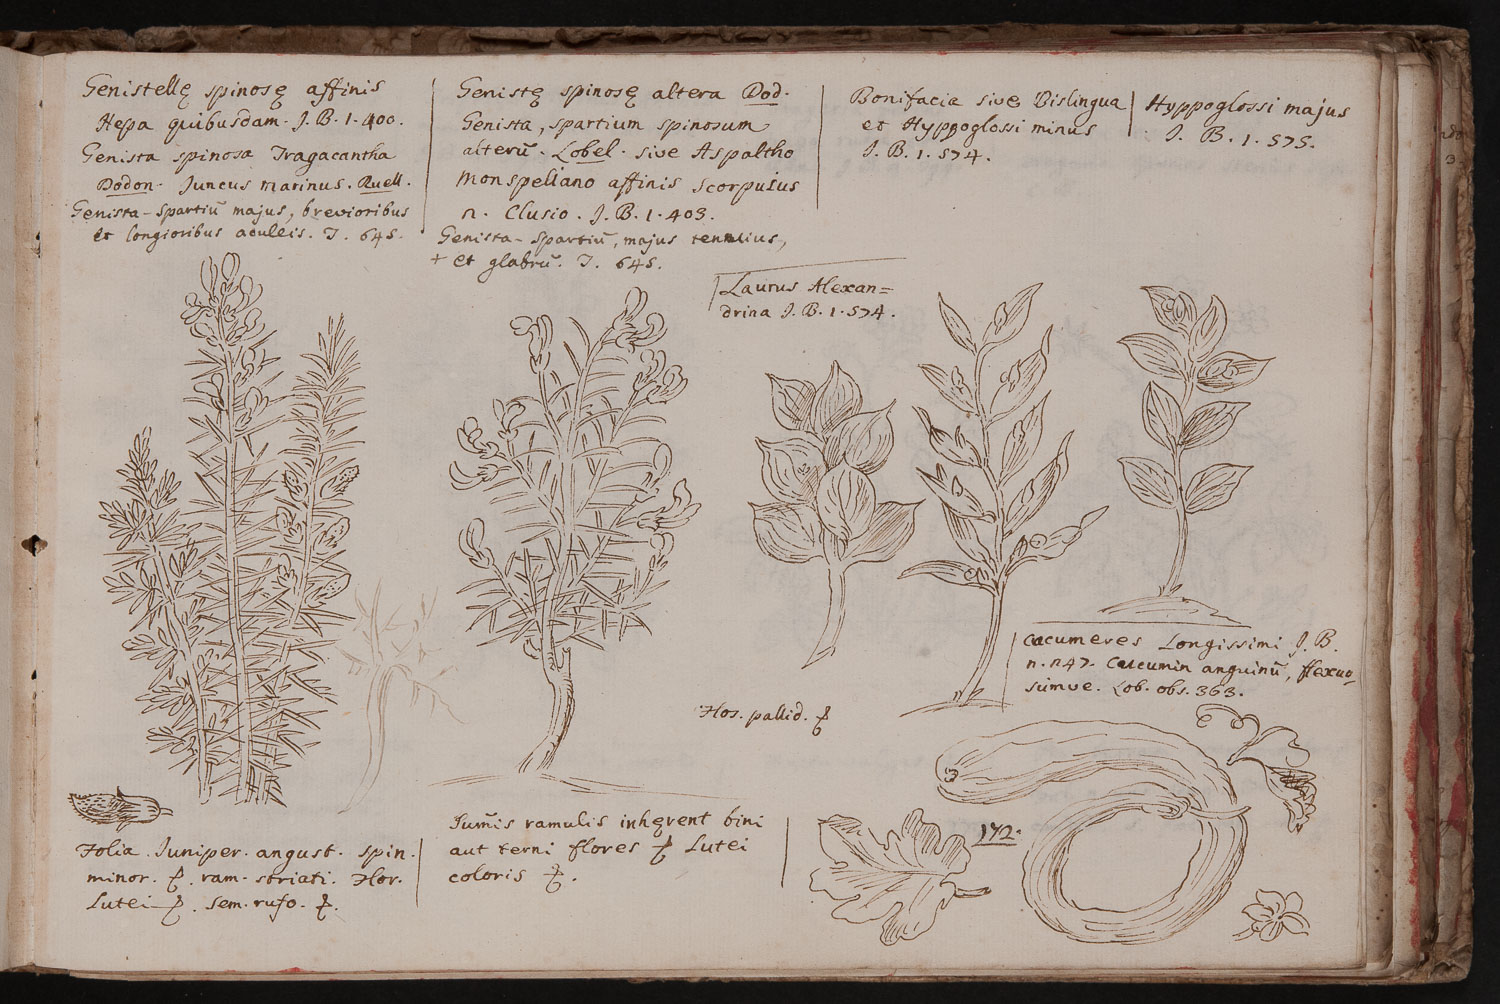 Genistellę spinosę affinis
Nepa quibusdam. J. B. 1. 400.
Genista spinosa Tragacantha
Dodon. Juncus marinus. Ruell.
Genista-Spartiū majus, brevioribus
et longioribus aculeis. T. 645.
Genistę spinosę altera Dod.
Genista, spartium spinosum
alterū. Lobel. sive Aspaltho
Monspeliano affinis scorpuius
n. Clusio. J. B. 1. 403.
Genista-Spartiū, majus tenuius,
+ et glabrū. T. 645.
Bonifacia sive Bislingua
et Hyppoglossi minus
J. B. 1. 574.
Hyppoglossi majus
J. B. 1. 575.
Laurus Alexan=
drina J. B. 1. 574.
Cacumeres Longissimi J. B.
n. 247. Cucumin anguinū, flexuo-
sumve. Lob. obs. 363.
Flos. pallid.
172.
Folia. Juniper. angust. spin.
minor. ram. striati. Flor.
Lutei. sem. rufo.
Sum̄is ramulis inhęrent bini
aut terni flores Lutei
coloris